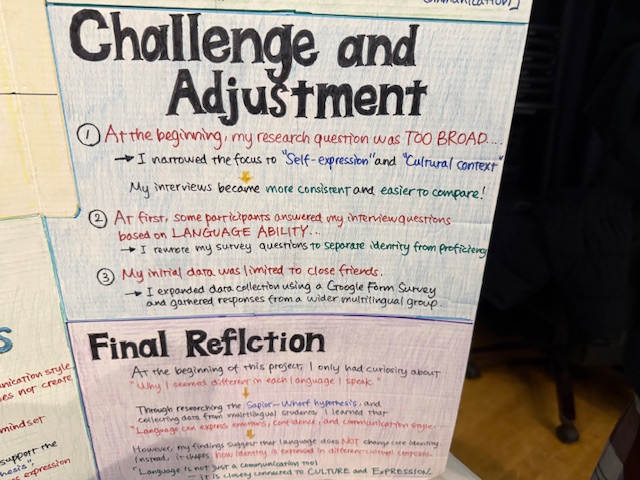 Communication]
Challenge and
Adjustment
① At the beginning, my research question was TOO BROAD....
→ I narrowed the focus to "Self-expression" and "Cultural context"
My interviews became more consistent and easier to compare!
② At first, some participants answered my interview questions
based on LANGUAGE ABILITY...
→ I rewrote my survey questions to separate identity from proficiency
③ My initial data was limited to close friends.
→ I expanded data collection using a Google Form Survey
and gathered responses from a wider multilingual group.
S
unication style
oes not create
mindset
support the
hesis",
es expression
Final Reflction
At the beginning of this project, I only had curiosity about
"Why I seemed different in each language I speak."
Through researching the Sapior-Whorf hypothesis, and
collecting data from multilingual students, I learned that
"Language can express emotions, confidence, and communication style.
However, my findings suggest that language does NOT change core identity.
Instead, it shapes how identity is expressed in different cultural contexts.
"Language is not just a communication tool
— it is closely connected to CULTURE and EXPRESSION.